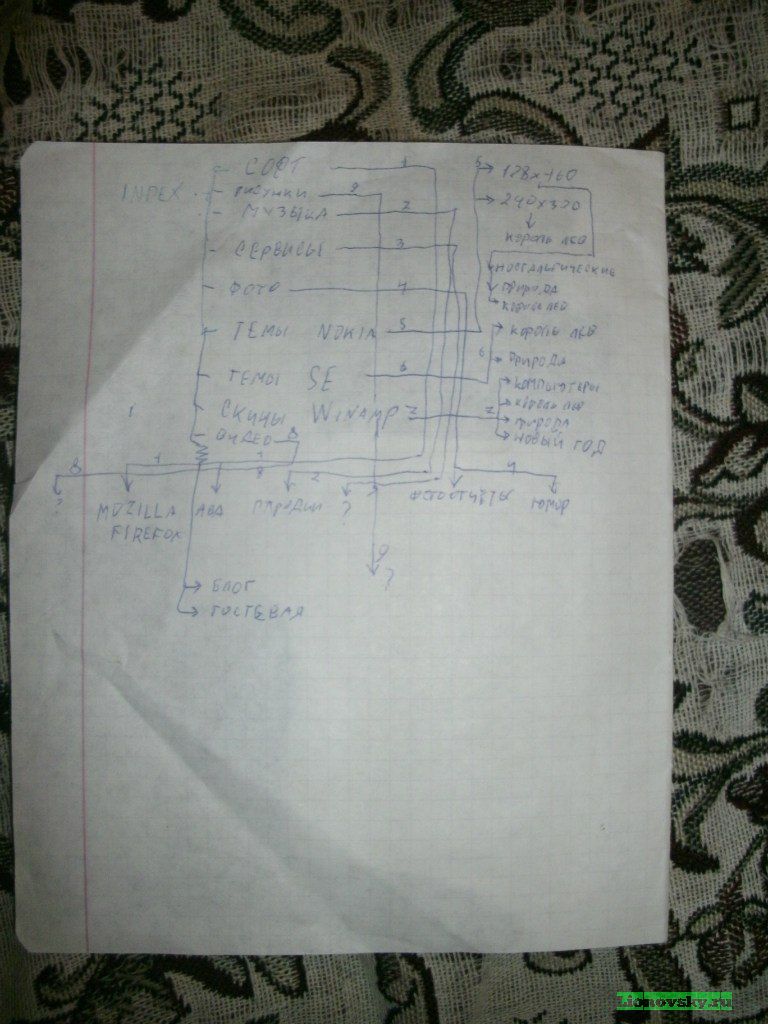 СОФТ 1 5 128x160
INDEX РИСУНКИ 9 240x320
МУЗЫКА 2
КОРОЛЬ ЛЕВ
СЕРВИСЫ 3
НОСТАЛЬГИЧЕСКИЕ
ФОТО 4 ПРИРОДА
КОРОЛЬ ЛЕВ
ТЕМЫ NOKIA 5 КОРОЛЬ ЛЕВ
6 ПРИРОДА
ТЕМЫ SE 6 КОМПЬЮТЕРЫ
КОРОЛЬ ЛЕВ
1 СКИНЫ WINAMP 7 7 ПРИРОДА
ВИДЕО 8 НОВЫЙ ГОД
8 1 1 8 2 4
? MOZILLA FIREFOX
ПАРОДИИ ? ФОТООТЧЁТЫ ЮМОР
9
?
БЛОГ
ГОСТЕВАЯ
lionovsky.ru